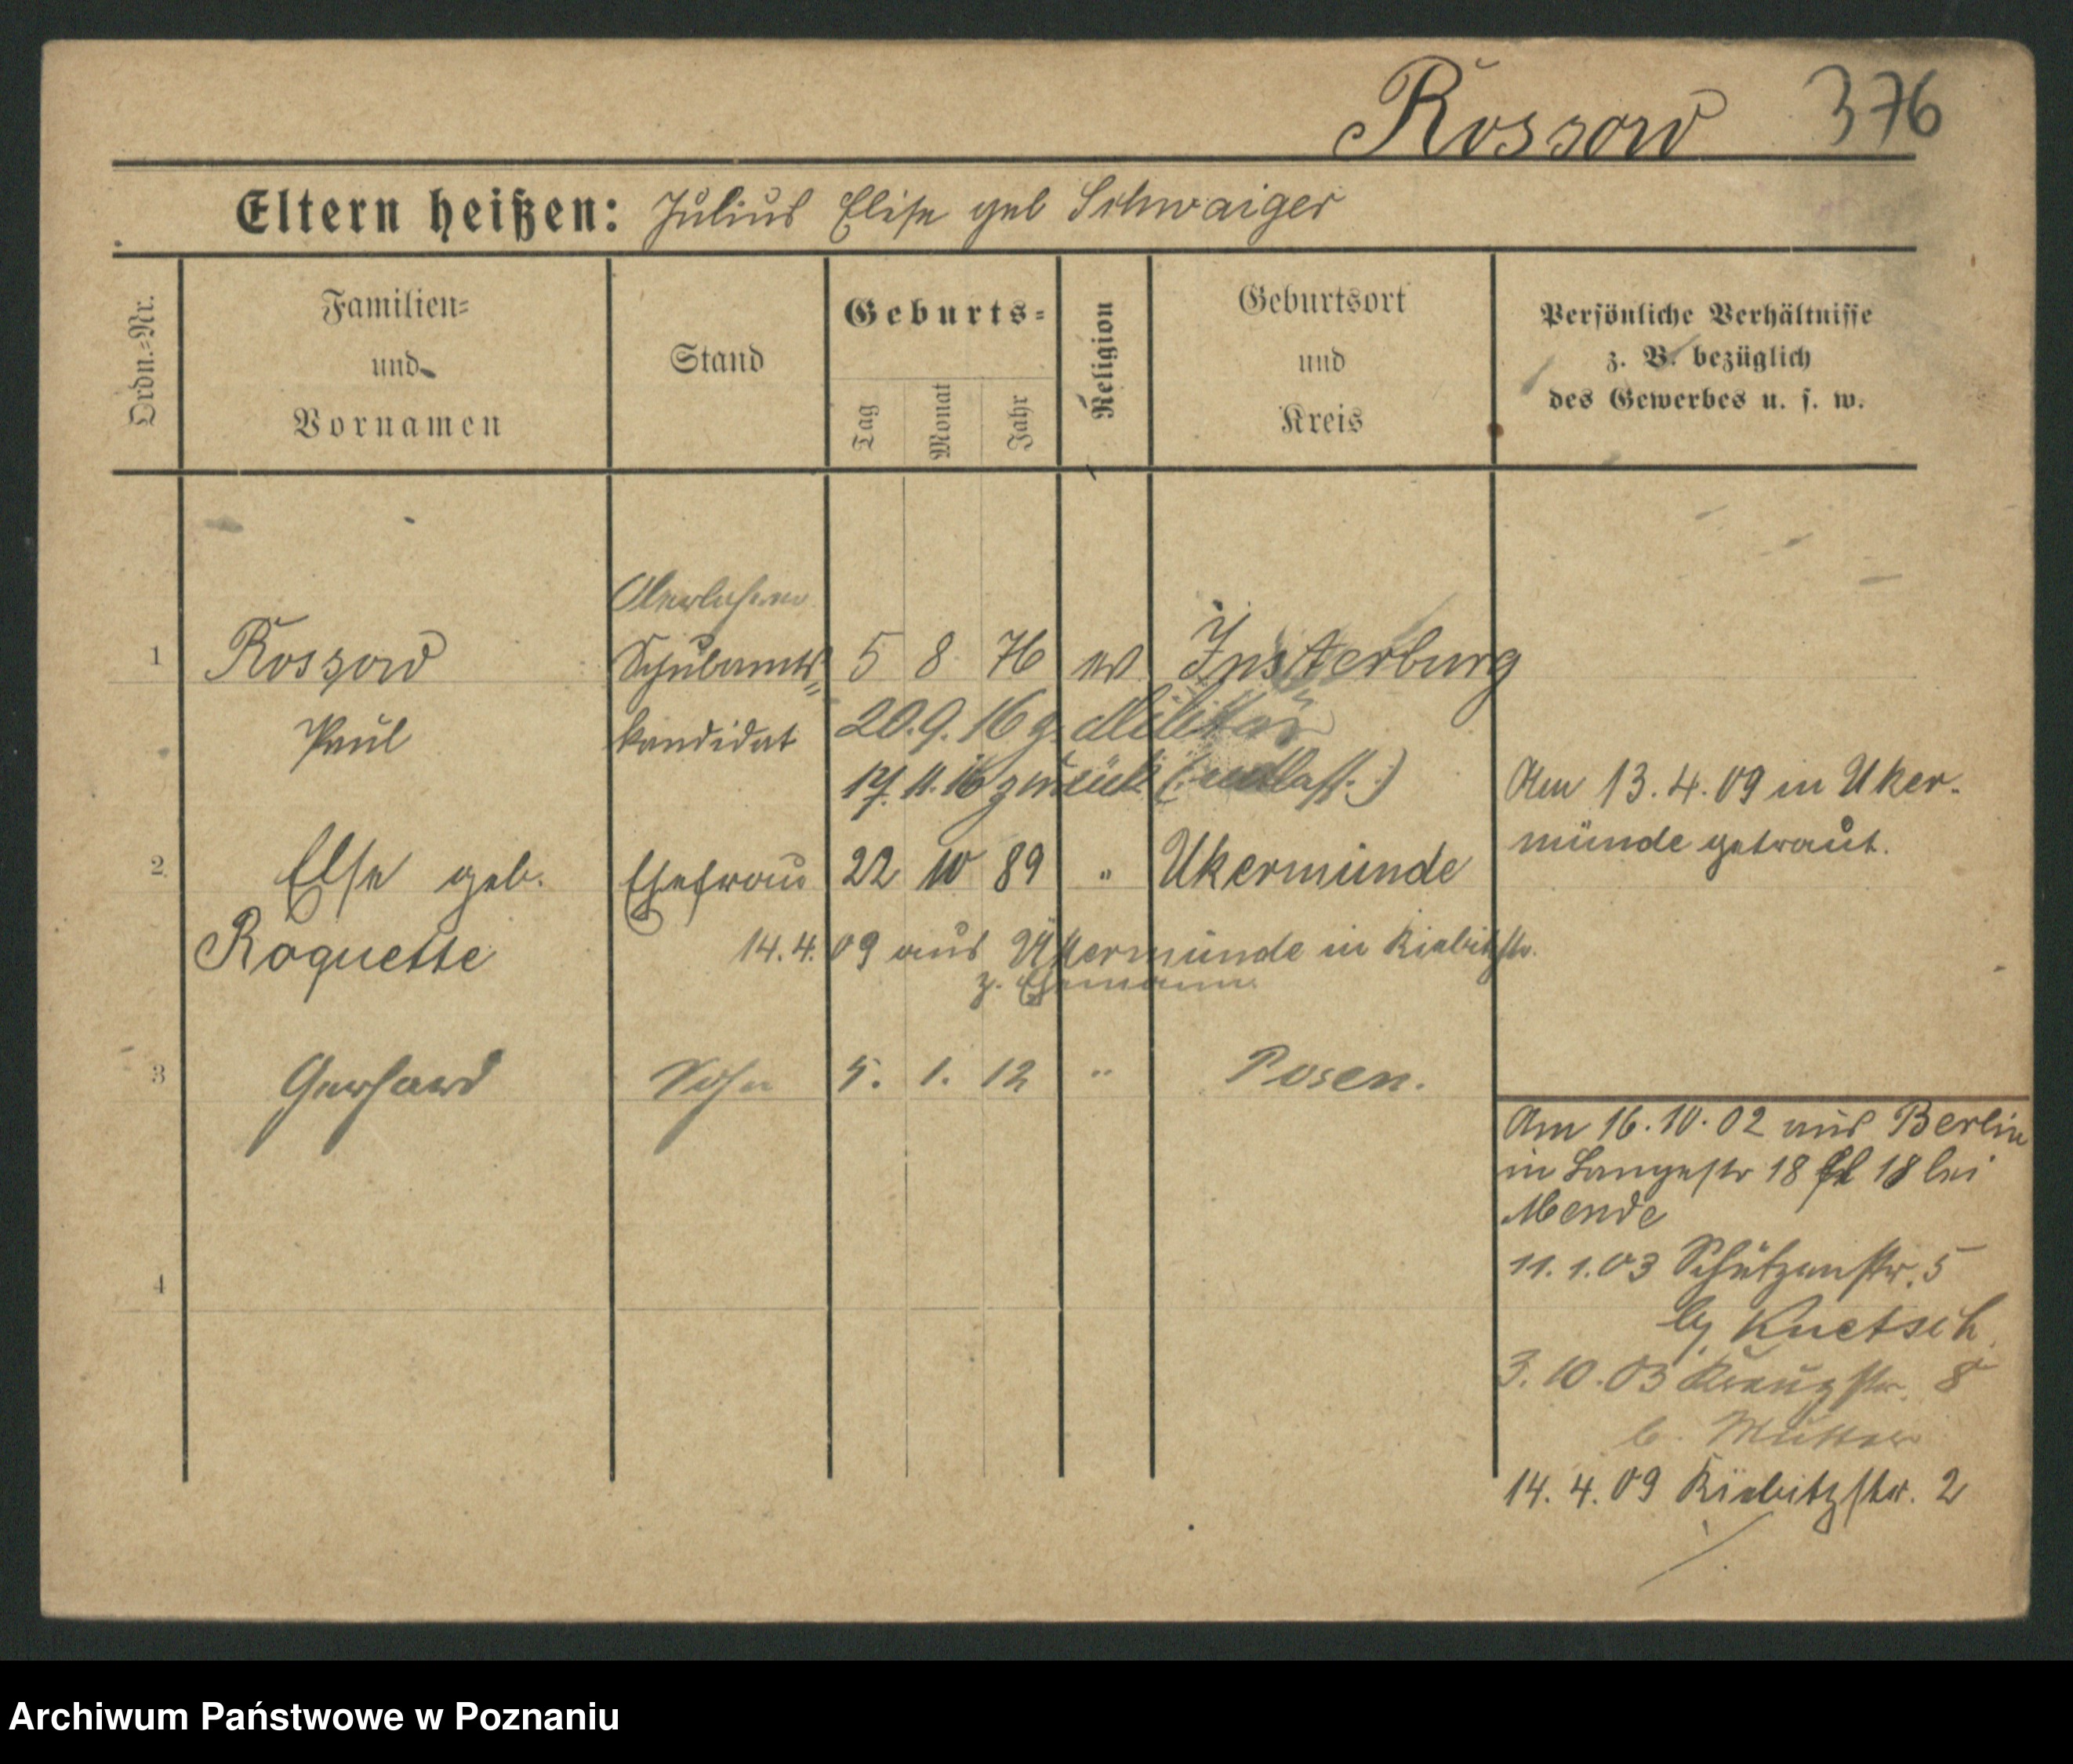 Rossow 376
Eltern heißen: Julius Elise geb Schwaiger
Ordn.=Nr.
Familien=
und
Vornamen
Stand
Geburts=
Tag
Monat
Jahr
Religion
Geburtsort
und
Kreis
Persönliche Verhältnisse
z. B. bezüglich
des Gewerbes u. s. w.
Oberlehrer
1 Rossow Schulamts= 5 8 76 ev Insterburg
Paul kandidat 20.9.16 z. Militär
17.11.16 zurück (entlass.)
Am 13.4.09 in Uker-
münde getraut.
2 Else geb. Ehefrau 22 10 89 " Ukermünde
Roquette 14.4.09 aus Ükermünde in Kiebitzstr.
z. Ehemann
3 Gerhard Sohn 5. 1. 12 " Posen.
Am 16.10.02 aus Berlin
in Langestr 18 18 bei
Mende
11.1.03 Schützenstr. 5
by Knetsch
3.10.03 Kreuzstr. 8
b. Mutter
4
14.4.09 Kiebitzstr. 2
Archiwum Państwowe w Poznaniu